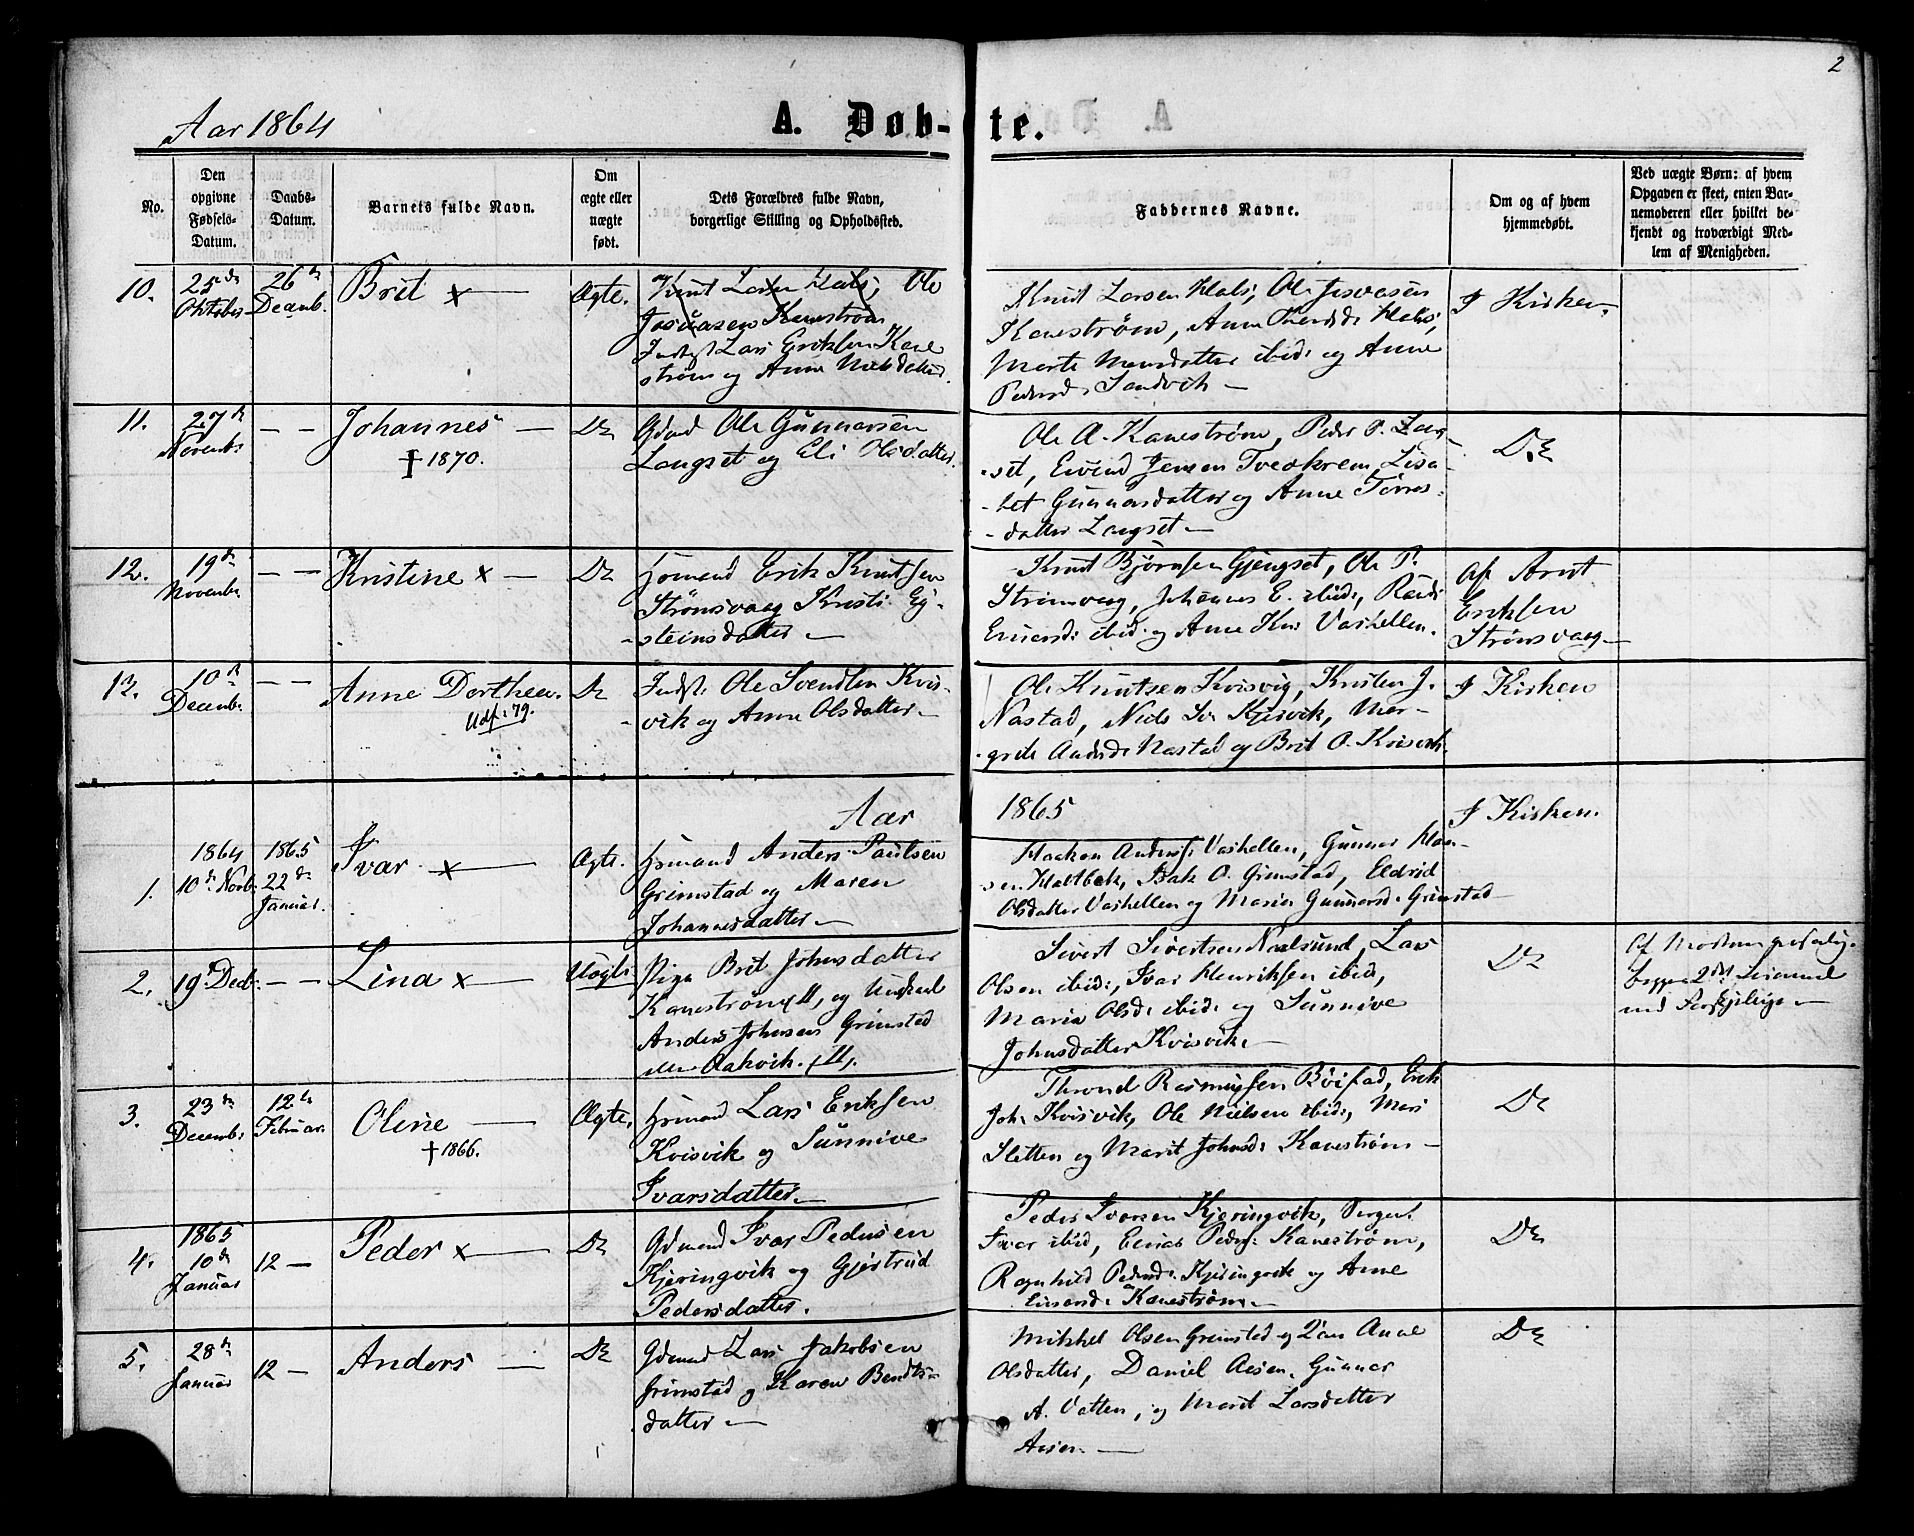 2
Aar 1864
A. Døb-te.
No.
Den opgivne Fødsels-Datum.
Daabs-Datum.
Barnets fulde Navn.
Om ægte eller uægte født.
Dets Forældres fulde Navn, borgerlige Stilling og Opholdssted.
Faddernes Navne.
Om og af hvem hjemmedøbt.
Ved uægte Børn: af hvem Opgaven er skeet, enten Bar-nemoderen eller hvilket be-kjendt og troværdigt Med-lem af Menigheden.
10.
25de Oktober
26de Decemb.
Brit x —
Ægte.
Knut Larsen Hals, Ole
Josuasen Kanestrøm
Indst Lars Eriksen Kane
strøm og Anne Nielsdatter.
Knut Larsen Hals, Ole Josvasen
Kanestrøm, Anne Knudsd: Hals,
Marte Monsdatter ibid: og Anne
Pedersd. Sandvik —
I Kirken.
11.
27de Novemb:
— —
Johannes —
† 1870.
Do
Gdmd Ole Gunnarsen
Langset og Eli Olsdatter.
Ole A. Kanestrøm, Peder P. Lang-
set, Eivind Jensen Tvedkrem, Lisa-
bet Gunnarsdatter og Anne Torres-
datter Langset —
Do
12.
19de Novembr
— —
Kristine x —
Do
Hsmand Erik Knutsen
Strømsvaag Kristi Ey-
steinsdatter —
Knut Bjørnsen Gjengset, Ole P.
Strømsvaag, Johannes E. ibid:, Randi
Einarsd: ibid: og Anne Kn: Vashellen.
Af Arnt
Eriksen
Strømsvaag —
13.
10de Decemb:
— —
Anne Dorthea.
Udf: 79.
Do
Indst: Ole Svendsen Kvis-
vik og Anne Olsdatter —
Ole Knutsen Kvisvig, Kristen J.
Nastad, Niels Sv. Kvisvik, Mar-
grete Andersd: Nastad og Brit O. Kvisvik.
I Kirken
Aar 1865
1.
1864
10de Novb.
1865
22de
Januar.
Ivar x —
Ægte.
Hsmand Anders Paulsen
Grimstad og Maren
Johannesdatter —
Haakon Andersf: Vashellen, Gunnar Han-
sen Haltbak, Isak O. Grimstad, Eldrid
Olsdatter Vashellen og Maria Gunnarsd: Grimstad —
I Kirken.
2.
19de Decb.
— —
Lina x —
Uægte
Pige Brit Johnsdatter
Kanestrøm og Ungkarl
Anders Johnsen Grimstad
eller Aakvik.
Sivert Sivertsen Naalsund, Lars
Olsen ibid:, Ivar Henriksen ibid:,
Maria Olsd: ibid: og Sunnive
Johnsdatter Kvisvik. —
Do
Af Moderen
begges 2det Leiermaal
3.
23de
Decemb:
12te
Februar.
Oline —
† 1866.
Ægte.
Hsmand Lars Eriksen
Kvisvik og Sunnive
Ivarsdatter —
Thrond Rasmussen Bøifad, Erik
Joh: Kvisvik, Ole Nielsen ibid:, Mari
Sletten og Marit Johnsd: Kanestrøm —
Do
4.
1865
10de
Januar
12 —
Peder x —
Do
Gdmand Ivar Pedersen
Kjeringvik og Gjertrud
Pedersdatter.
Peder Ivarsen Kjeringvik, Sergent
Ivar ibid, Einar Peders: Kanestrøm,
Ragnhild Pedersd: Kjeringvik og Anne
Einarsd: Kanestrøm —
Do
5.
28de
Januar
12 —
Anders —
Do
Gdmand Lars Jakobsen
Grimstad og Karen Bendts-
datter —
Mikkel Olsen Grimstad og Anne
Olsdatter, Daniel Aasen, Gunnar
A. Vatten, og Marit Larsdatter
Aasen —
Do